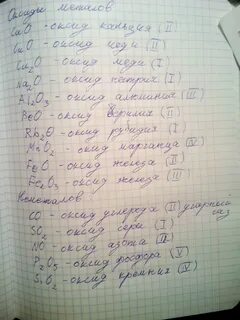 Оксиды металов
CaO - оксид кальция (II)
CuO - оксид меди (II)
Cu₂O - оксид меди (I)
Na₂O - оксид натрия (I)
Al₂O₃ - оксид алюминия (III)
BeO - оксид берилия (II)
Rb₂O - оксид рубидия (I)
MnO₂ - оксид марганца (IV)
FeO - оксид железа (II)
Fe₂O₃ - оксид железа (III)
Неметалов
CO - оксид углерода (II) угарный газ
SO₂ - оксид серы (I)
NO - оксид азота (II)
P₂O₅ - оксид фосфора (V)
SiO₂ - оксид кремния (IV)